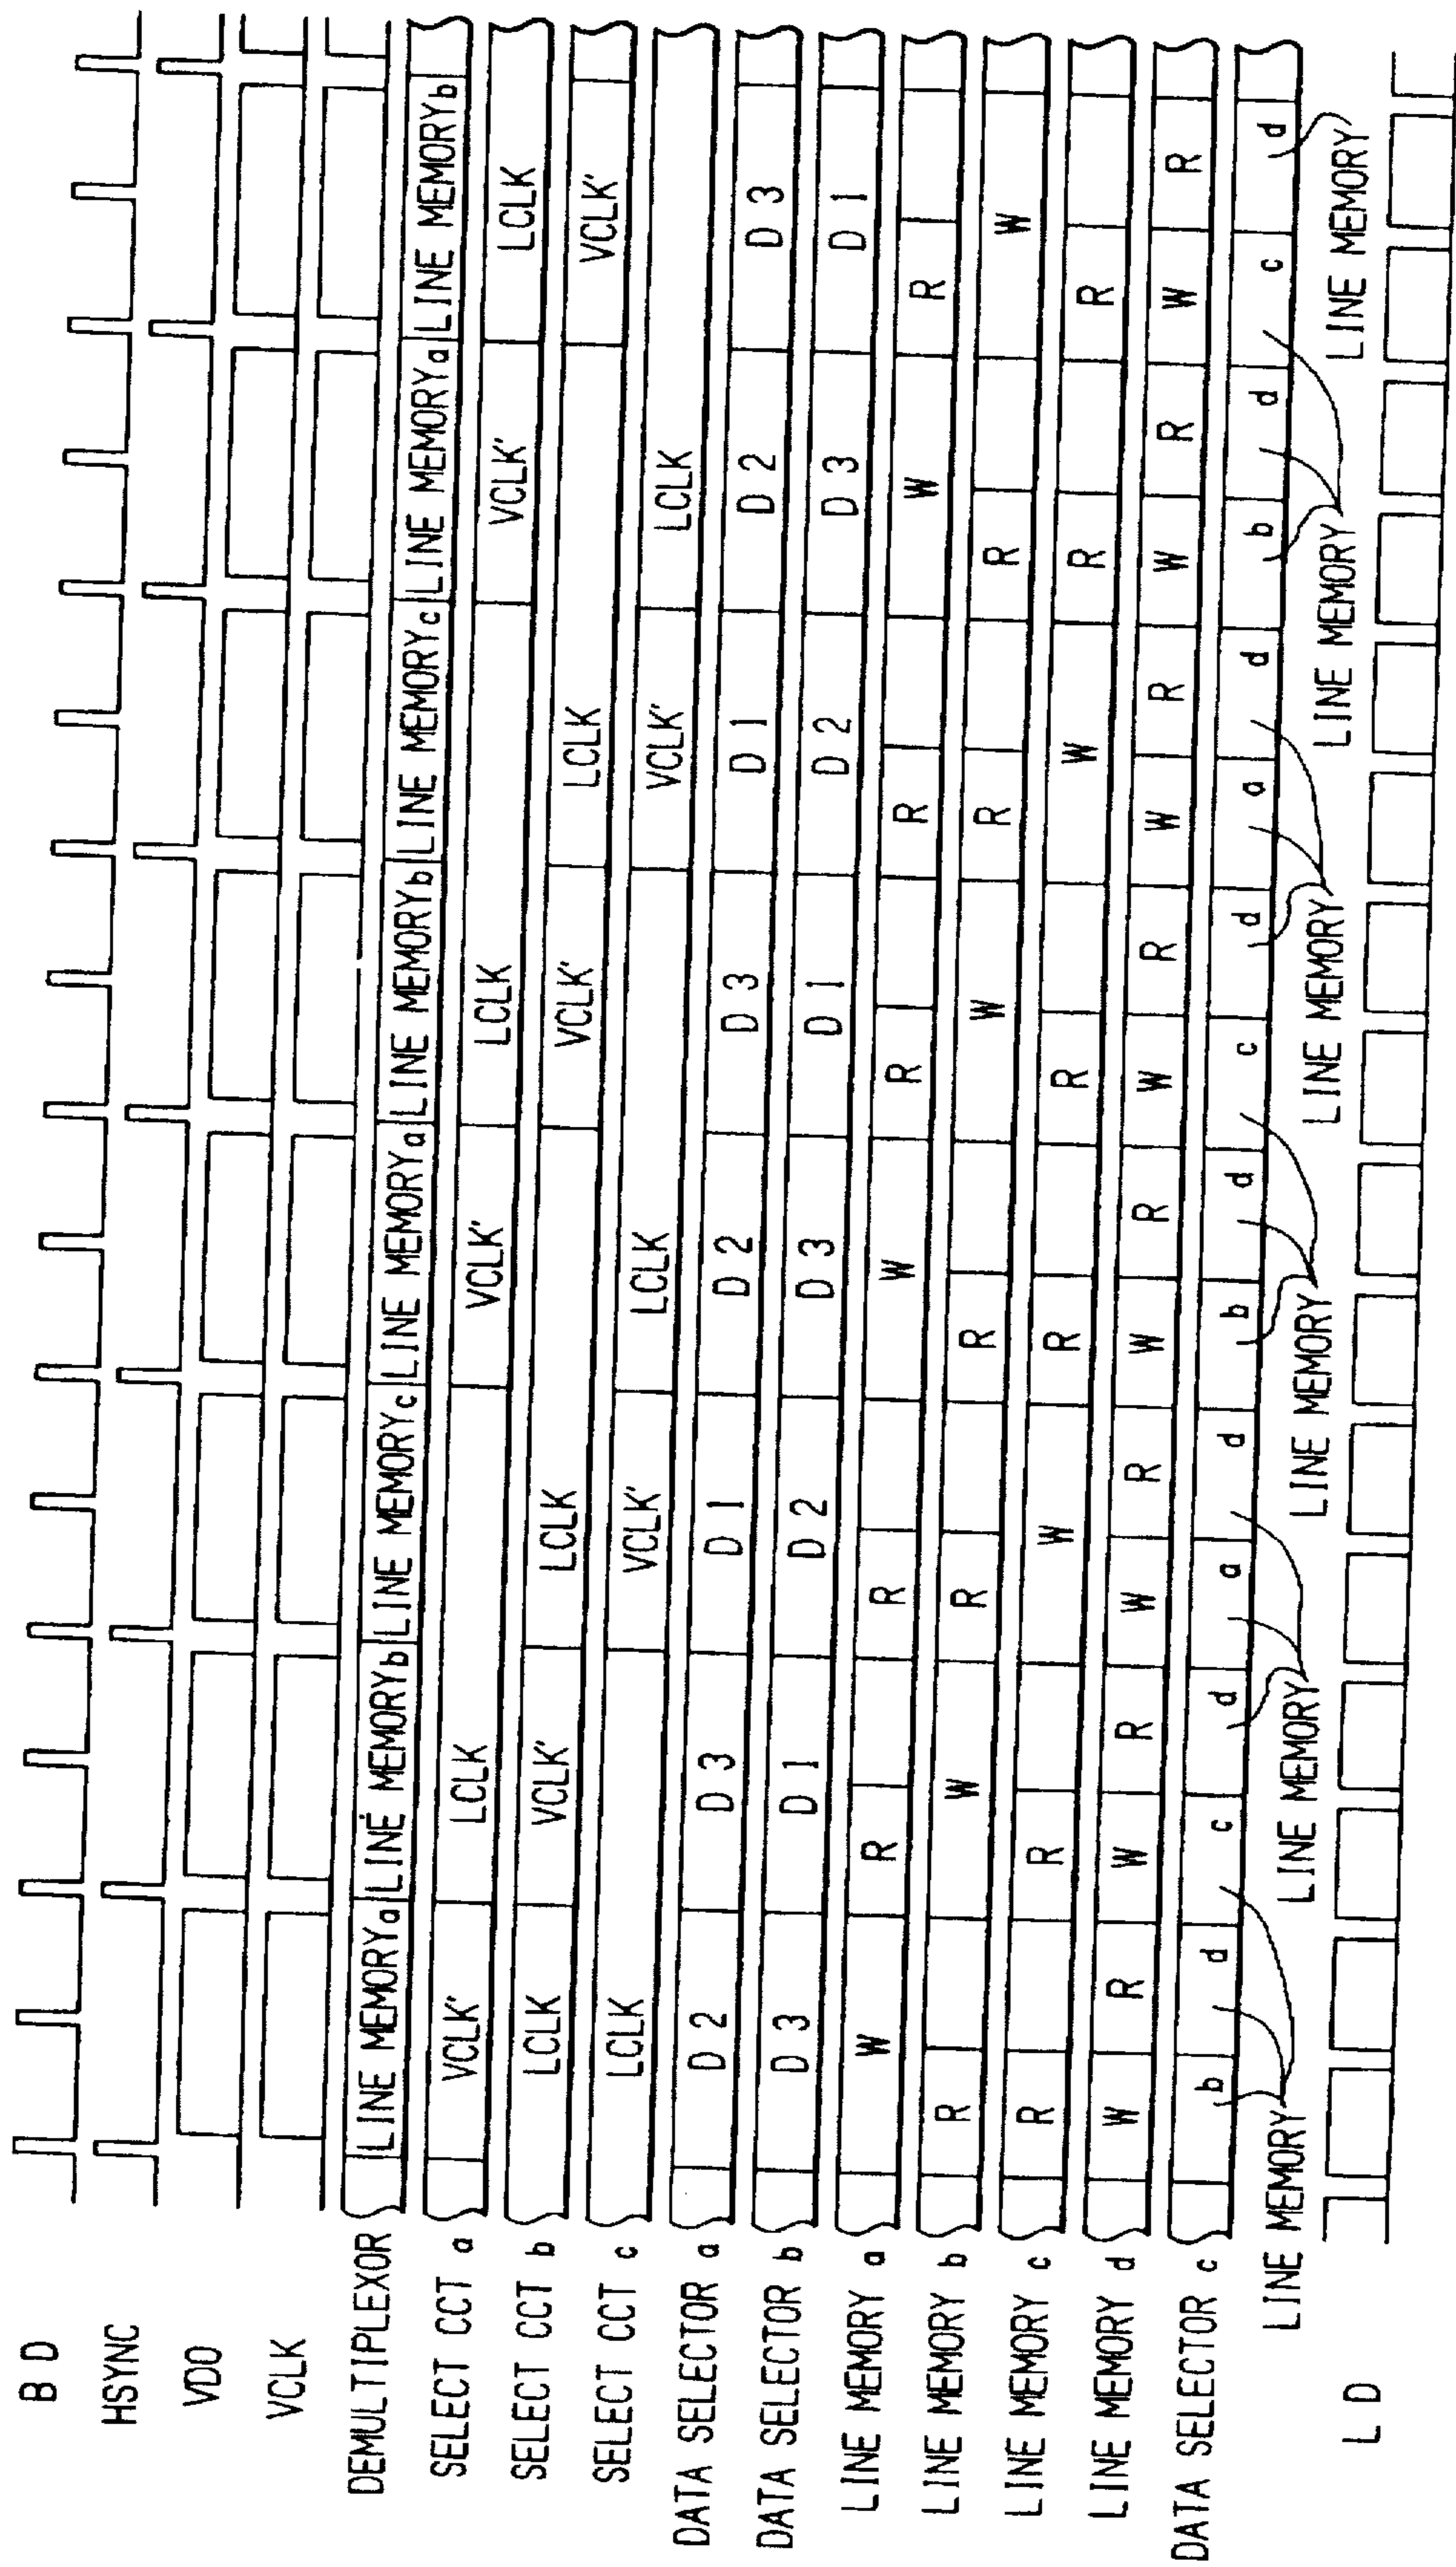 B D
HSYNC
VDO
VCLK
DEMULTIPLEXOR LINE MEMORY a LINE MEMORY b LINE MEMORY c LINE MEMORY a LINE MEMORY b LINE MEMORY c LINE MEMORY a LINE MEMORY b
SELECT CCT a VCLK' LCLK VCLK' LCLK VCLK' LCLK
SELECT CCT b LCLK VCLK' LCLK VCLK' LCLK VCLK'
SELECT CCT c LCLK VCLK' LCLK VCLK' LCLK
DATA SELECTOR a D 2 D 3 D 1 D 2 D 3 D 1 D 2 D 3
DATA SELECTOR b D 3 D 1 D 2 D 3 D 1 D 2 D 3 D 1
LINE MEMORY a W R R W R R W R
LINE MEMORY b R W R R W R R W
LINE MEMORY c R R W R R W R R
LINE MEMORY d W R W R W R W R W R W R W R W R
DATA SELECTOR c b d c d a d b d c d a d b d c d
LINE MEMORY LINE MEMORY LINE MEMORY LINE MEMORY LINE MEMORY LINE MEMORY
L D